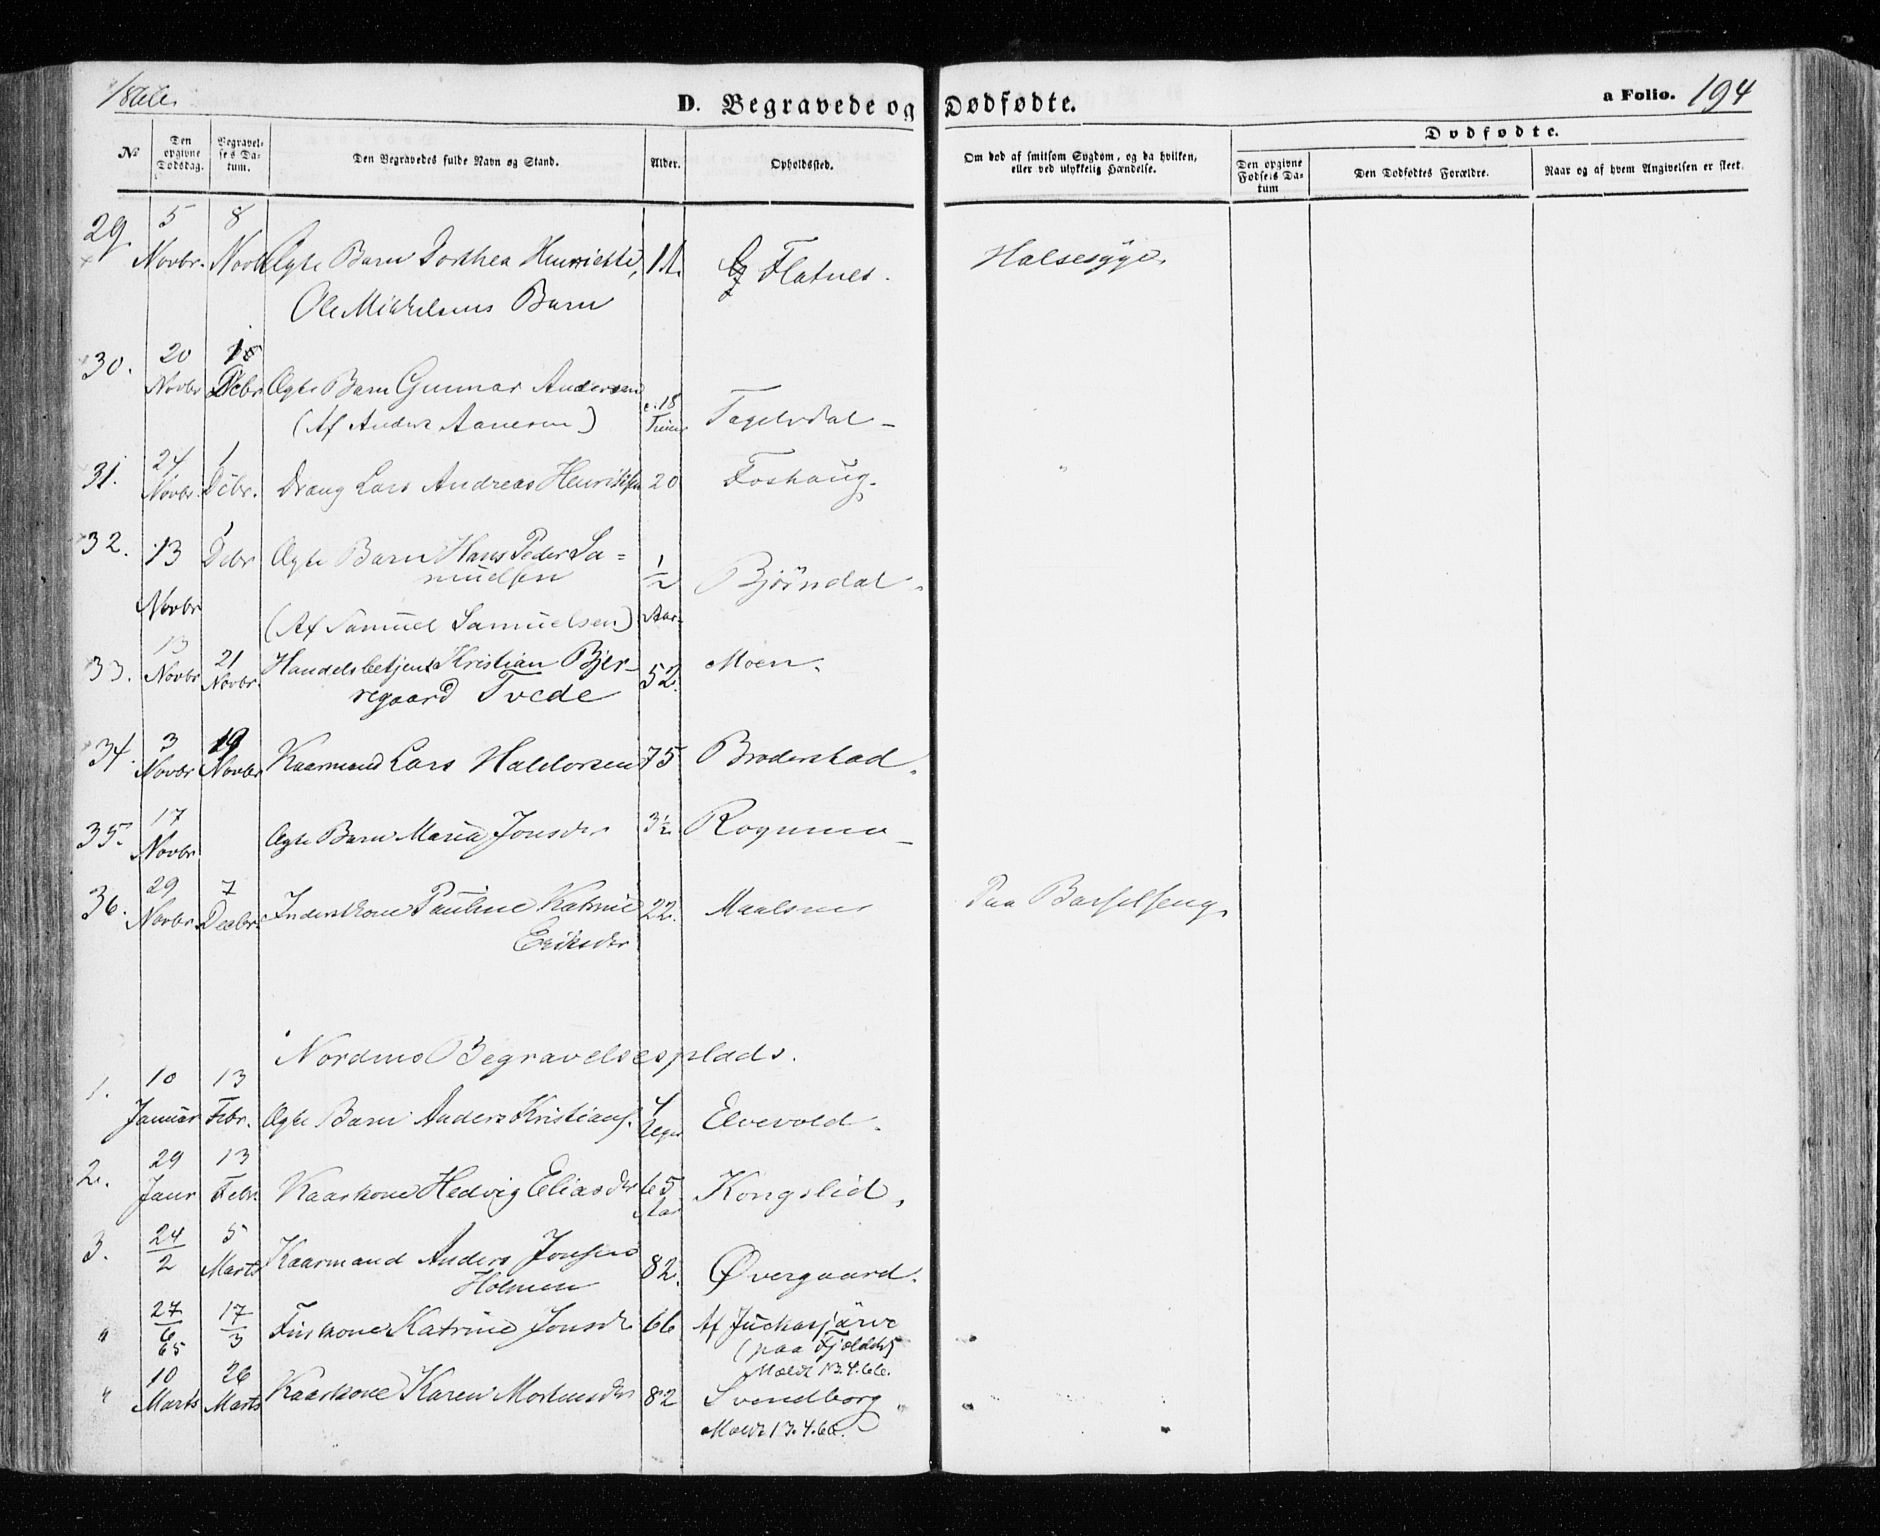 1866.
D. Begravede og Dødfødte.
a Folio. 194
No
Den opgivne Dødsdag.
Begravelses Datum.
Den Begravedes fulde Navn og Stand.
Alder.
Opholdssted.
Om død af smitsom Sygdom, og da hvilken, eller ved ulykkelig Hændelse.
Dødfødte.
Den opgivne Fødsels Datum
Den Dødfødtes Forældre.
Naar og af hvem Angivelsen er skeet.
29. 5 Novbr. 8 Novb Ægte Barn Dorthea Henriette, Flatnes. Halsesyge.
Ole Mikkelsens Barn
30. 20 Novbr 15 Debr Ægte Barn Gunnar Andersen c. 18 Tagelvdal
(Af Anders Aanesen)
31. 24 Novbr. 1 Debr. Dreng Lars Andreas Henriksen 20 Foshaug. "
32. 13 Novbr 1 Debr Ægte Barn Hans Peder Sa=
muelsen 1/2 Aar. Bjørndal.
(Af Samuel Samuelsen)
33. 13 Novbr 21 Novbr. Handelsbetjent Kristian Bjer-
regaard Tvede 52. Moen.
34. 3 Novbr 19 Novbr Kaarmand Lars Haldorsen 75 Broderstad.
35. 17 Novbr Ægte Barn Maria Jonsdr 3 1/2 Rognmo
36. 29 Novbr. 7 Decbr. Inderstkone Pauline Katrine 22. Maalsnes Paa Barselseng.
Eriksdr
Nordmo Begravelsesplads.
1. 10 Januar 13 Febr. Ægte Barn Anders Kristians. Elvevold.
2. 29 Janr 13 Febr. Kaarkone Hedvig Eliasdr 65 Aar Kongslid.
3. 24/2 5 Marts Kaarmand Anders Jonsen
Holmen 82. Øvergaard.
" 27/6 65 17/3 Finkone Katrine Jonsdr 66 Af Juckasjärve
(paa Fjeldet)
Meldt 13.4.66.
" 10 Marts 26 Marts Kaarkone Karen Mortensdr 82 Svendborg
Meldt 13.4.66.